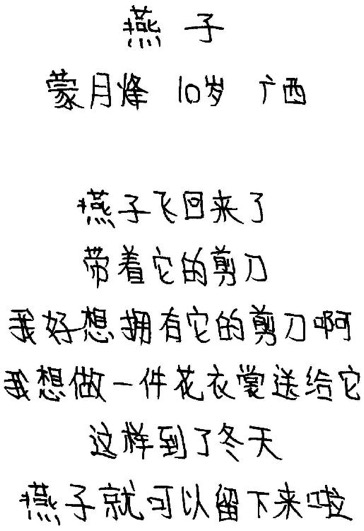 燕子
蒙月烽 10岁 广西
燕子飞回来了
带着它的剪刀
我好想拥有它的剪刀啊
我想做一件花衣裳送给它
这样到了冬天
燕子就可以留下来啦